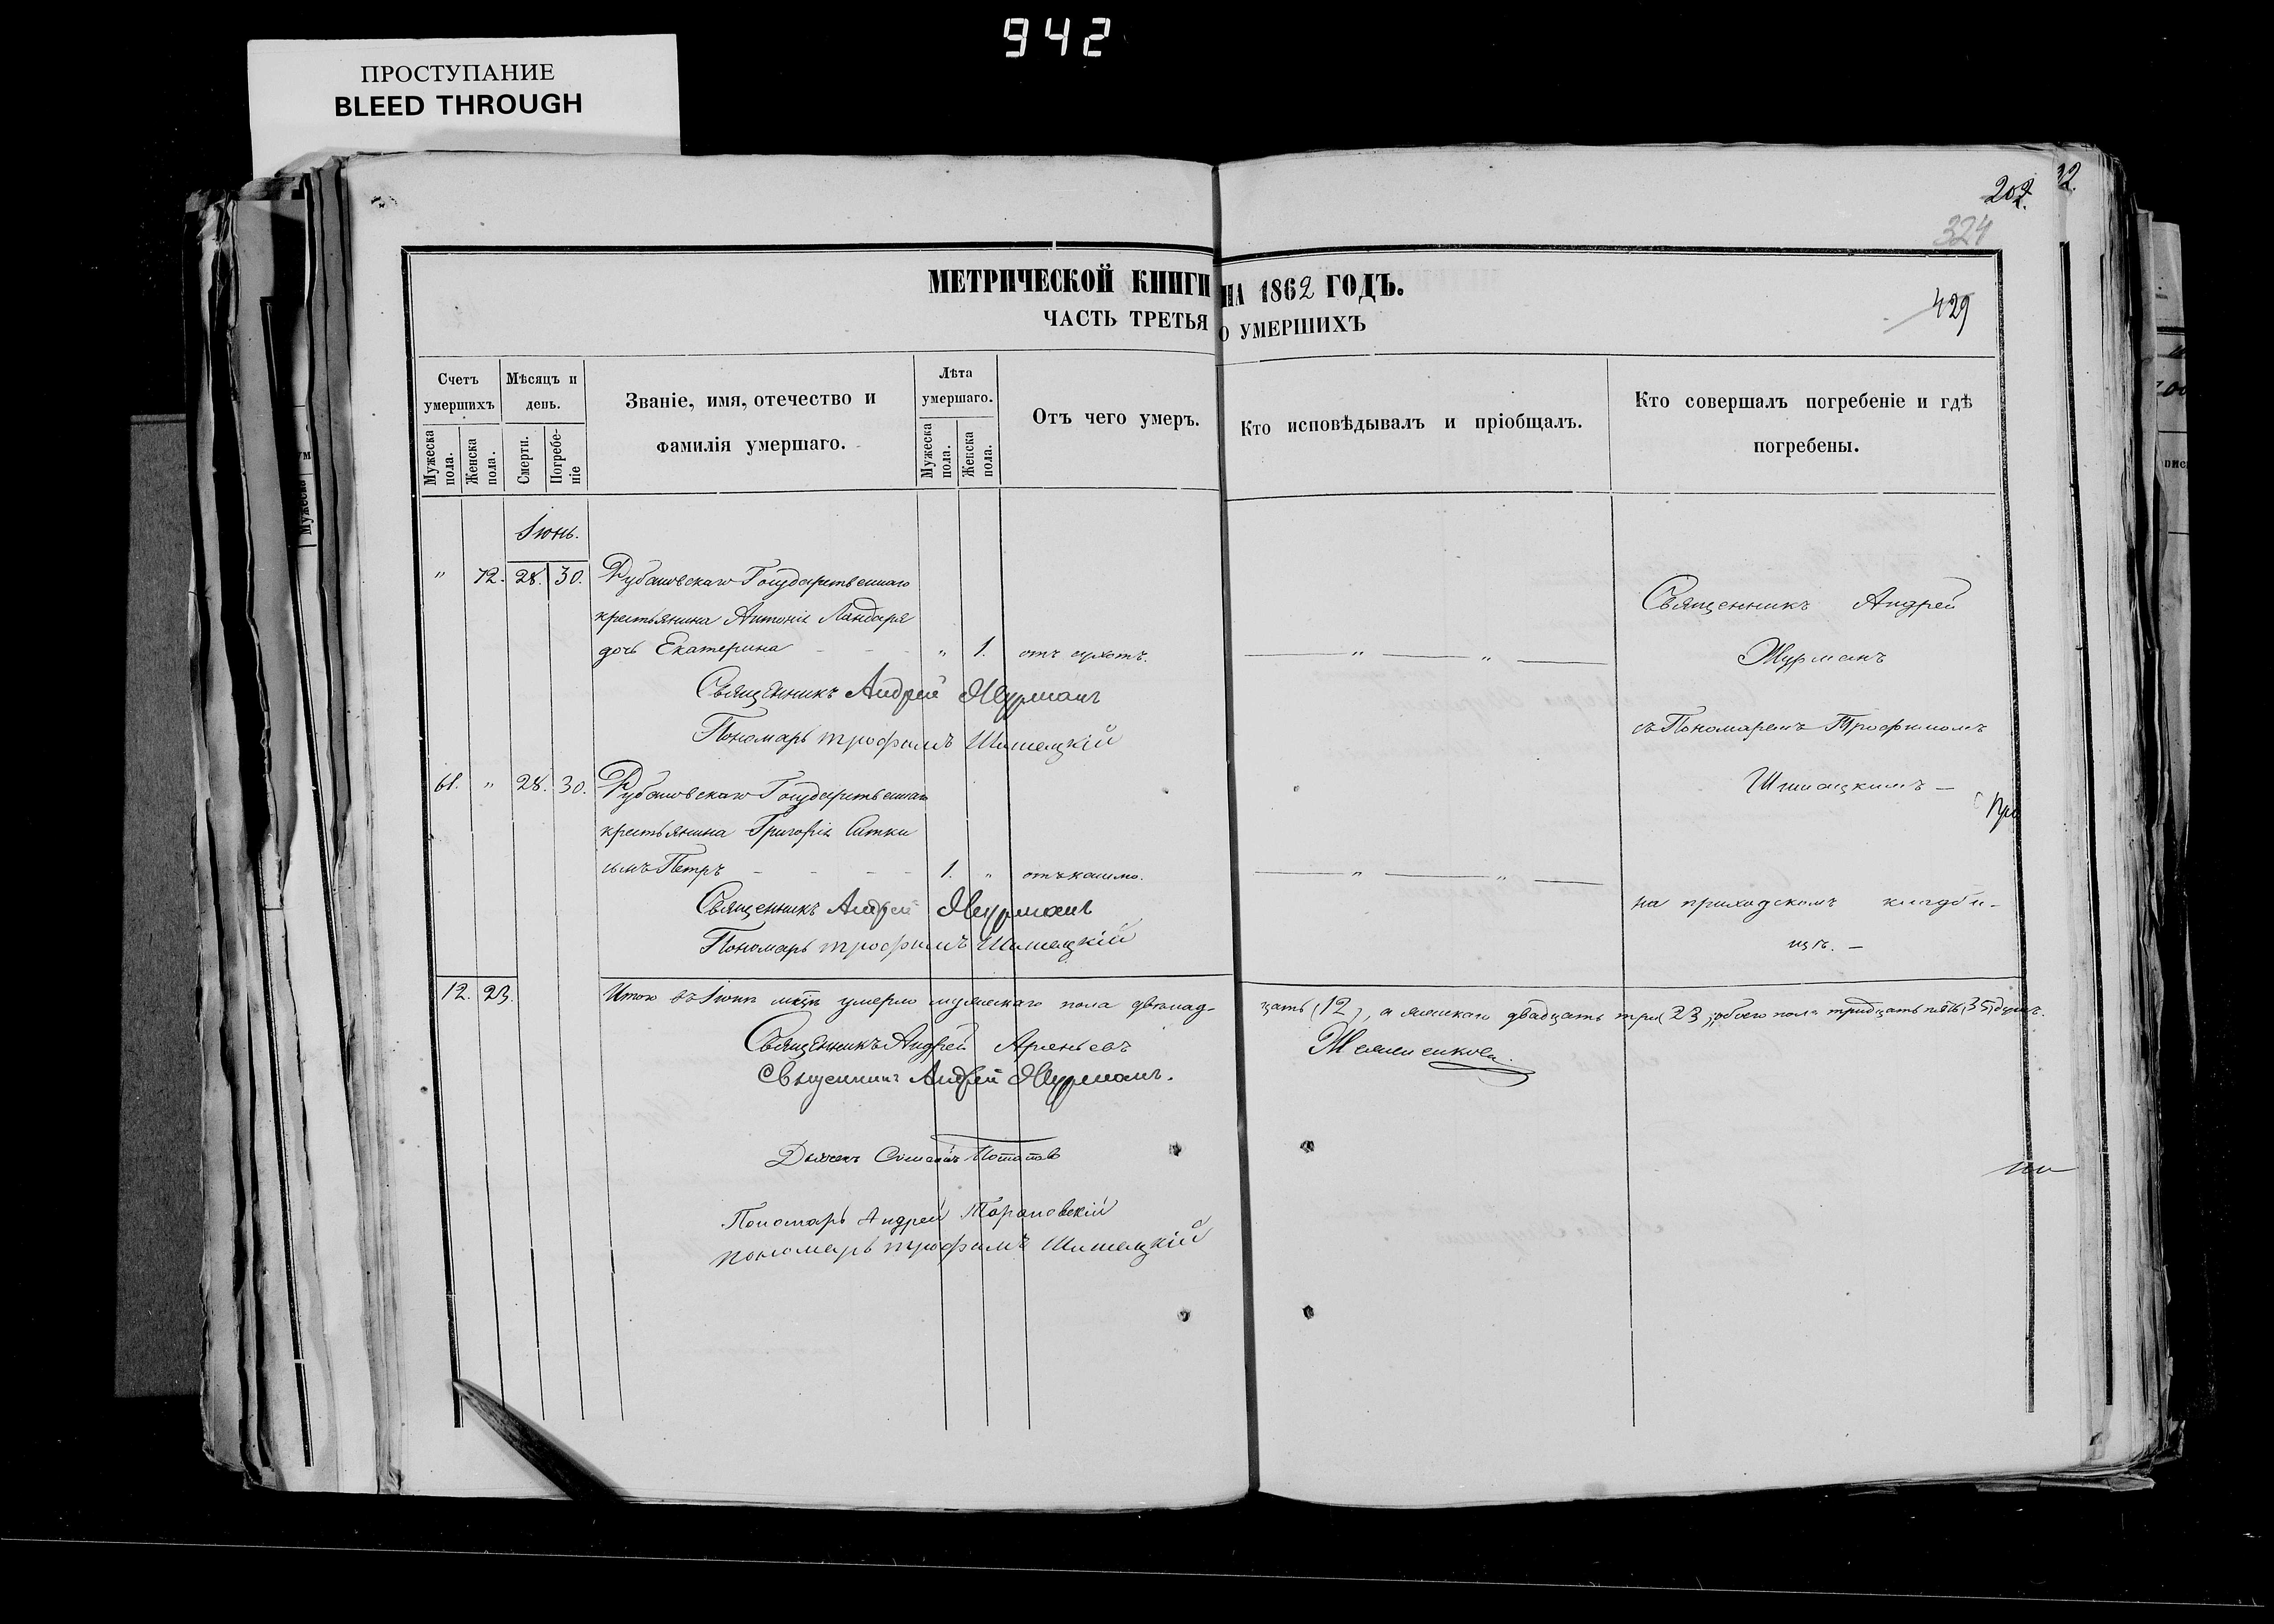 942
ПРОСТУПАНИЕ
BLEED THROUGH
202.
32.
324
429
МЕТРИЧЕСКОЙ КНИГИ НА 1862 ГОДЪ.
ЧАСТЬ ТРЕТЬЯ О УМЕРШИХЪ
Счетъ умершихъ
Мужеска пола.
Женска пола.
Мѣсяцъ и день.
Смерти.
Погребе-ніе
Званіе, имя, отечество и фамилія умершаго.
Лѣта умершаго.
Мужеска пола.
Женска пола.
Отъ чего умеръ.
Кто исповѣдывалъ и пріобщалъ.
Кто совершалъ погребеніе и гдѣ погребены.
Іюнь.
" 72. 28. 30. Рубановскаго Государственнаго
крестьянина Антонія Ландаря
дочь Екатерина - - " 1. отъ сухотъ. — " — " —
Священникъ Андрей Журманъ
Пономарь Трофимъ Шишацкій
Священникъ Андрей
Журманъ
съ Пономаремъ Трофимомъ
Шишацкимъ —
61. " 28. 30. Рубановскаго Государственнаго
крестьянина Григорія Ситки
сынъ Петръ - - - 1. " отъ кашлю. — " — " —
Священникъ Андрей Журманъ
Пономарь Трофимъ Шишацкій
на приходскомъ кладби-
щѣ. —
12. 23. Итого въ Іюнѣ мцѣ умерло мужескаго пола двѣнад-
цать (12), а женскаго двадцать три (23), обоего пола тридцать пять (35) душъ.
Священникъ Андрей Арсеньевъ
Священникъ Андрей Журманъ.
Пономарь Андрей Тарановскій
пономарь Трофимъ Шишацкій